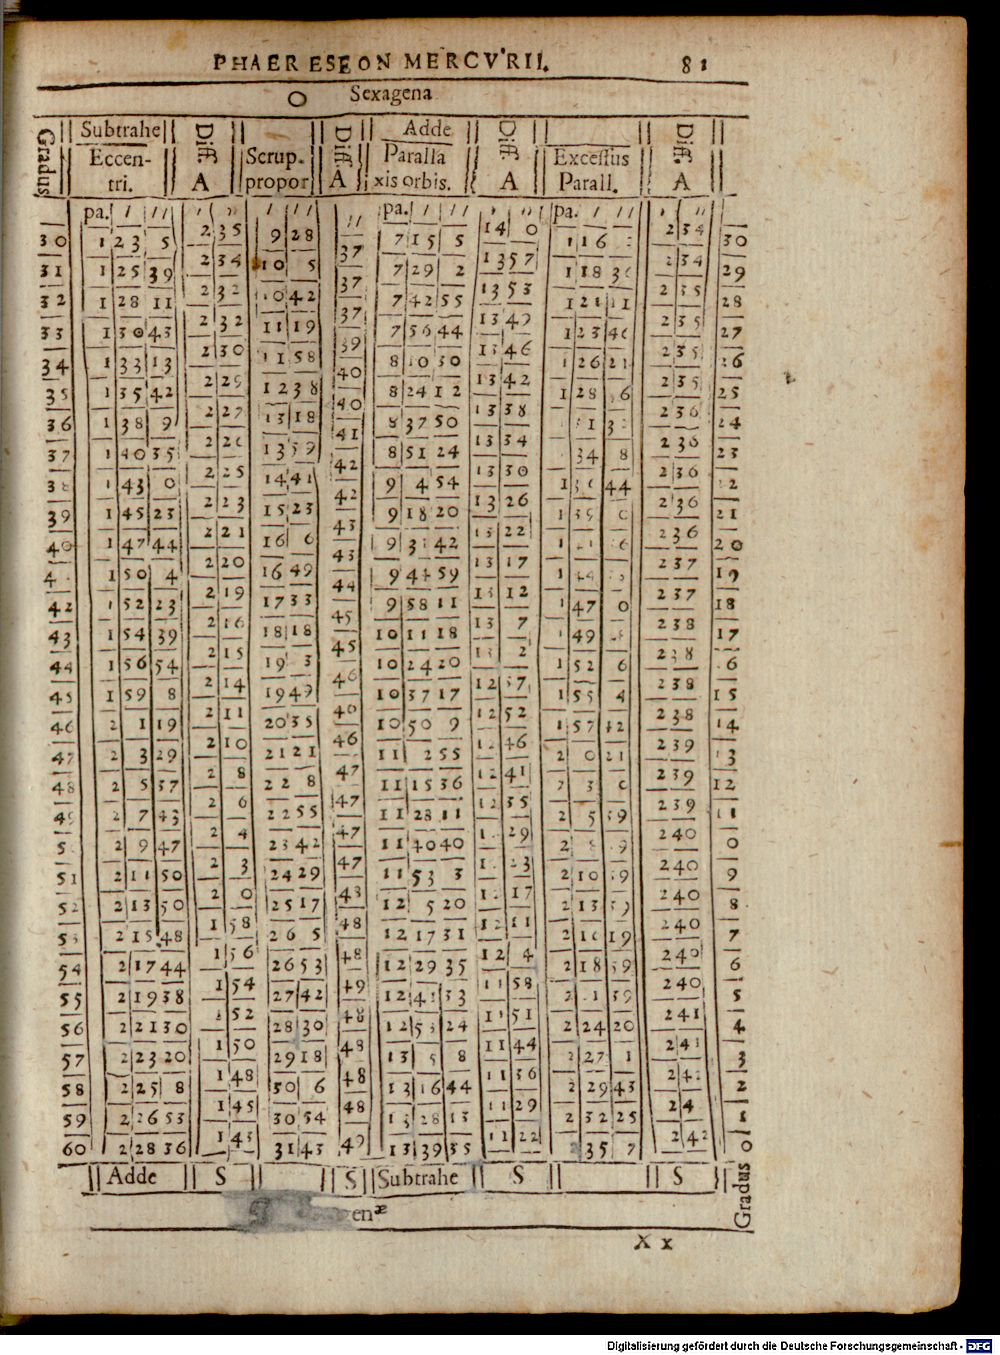 PHAERESEON MERCVRII. 81
O Sexagena
Gradus Subtrahe Diff. Diff. Adde Diff. Diff.
Eccen- Scrup. Paralla Excessus
tri. A propor A xis orbis. A Parall. A
pa. / // / // / // // pa. / // / // pa. / // / //
30 1 23 5 2 35 9 28 37 7 15 5 14 0 1 16 2 34 30
31 1 25 39 2 34 10 5 37 7 29 2 13 57 1 18 2 34 29
32 1 28 11 2 32 10 42 37 7 42 55 13 53 1 21 11 2 35 28
33 1 30 43 2 32 11 19 39 7 56 44 13 49 1 23 46 2 35 27
34 1 33 13 2 30 11 58 40 8 10 30 13 46 1 26 21 2 35 26
35 1 35 42 2 29 12 38 40 8 24 12 13 42 1 28 6 2 35 25
36 1 38 9 2 27 13 18 41 8 37 50 13 38 31 2 36 24
37 1 40 35 2 26 13 59 42 8 51 24 13 34 34 8 2 36 23
38 1 43 0 2 25 14 41 42 9 4 54 13 30 1 44 2 36 2
39 1 45 23 2 23 15 23 43 9 18 20 13 26 1 39 2 36 21
40 1 47 44 2 21 16 6 43 9 31 42 13 22 1 6 2 36 20
4 1 50 4 2 20 16 49 44 9 44 59 13 17 1 44 2 37 19
42 1 52 23 2 19 17 33 45 9 58 11 13 12 1 47 0 2 37 18
43 1 54 39 2 16 18 18 45 10 11 18 13 7 1 49 2 38 17
44 1 56 54 2 15 19 3 46 10 24 20 13 2 1 52 6 2 38 6
45 1 59 8 2 14 19 49 46 10 37 17 12 57 1 55 4 2 38 15
46 2 1 19 2 11 20 35 46 10 50 9 12 52 1 57 42 2 38 14
47 2 3 29 2 10 21 21 47 11 2 55 12 46 2 0 21 2 39 3
48 2 5 37 2 8 22 8 47 11 15 36 12 41 2 3 0 2 39 12
49 2 7 43 2 6 22 55 47 11 28 11 12 35 2 5 39 2 39 11
5 2 9 47 2 4 23 42 47 11 40 40 29 2 9 2 40 0
51 2 11 50 2 3 24 29 48 11 53 3 23 2 10 59 2 40 9
52 2 13 50 2 0 25 17 48 12 5 20 12 17 2 13 39 2 40 8
53 2 15 48 1 58 26 5 48 12 17 31 12 11 2 16 19 2 40 7
54 2 17 44 1 56 26 53 49 12 29 35 12 4 2 18 59 2 40 6
55 2 19 38 1 54 27 42 48 12 41 33 11 58 2 1 39 2 40 5
56 2 21 30 1 52 28 30 48 12 53 24 11 51 2 24 20 2 41 4
57 2 23 20 1 50 29 18 48 13 5 8 11 44 2 27 1 2 41 3
58 2 25 8 1 48 30 6 48 13 16 44 11 36 2 29 43 2 4 2
59 2 26 53 1 45 30 54 49 13 28 13 11 29 2 32 25 2 4 1
60 2 28 36 1 43 31 43 13 39 35 11 22 2 35 7 2 42 0
Adde S S Subtrahe S S Gradus
enæ
X x
Digitalisierung gefördert durch die Deutsche Forschungsgemeinschaft - DFG